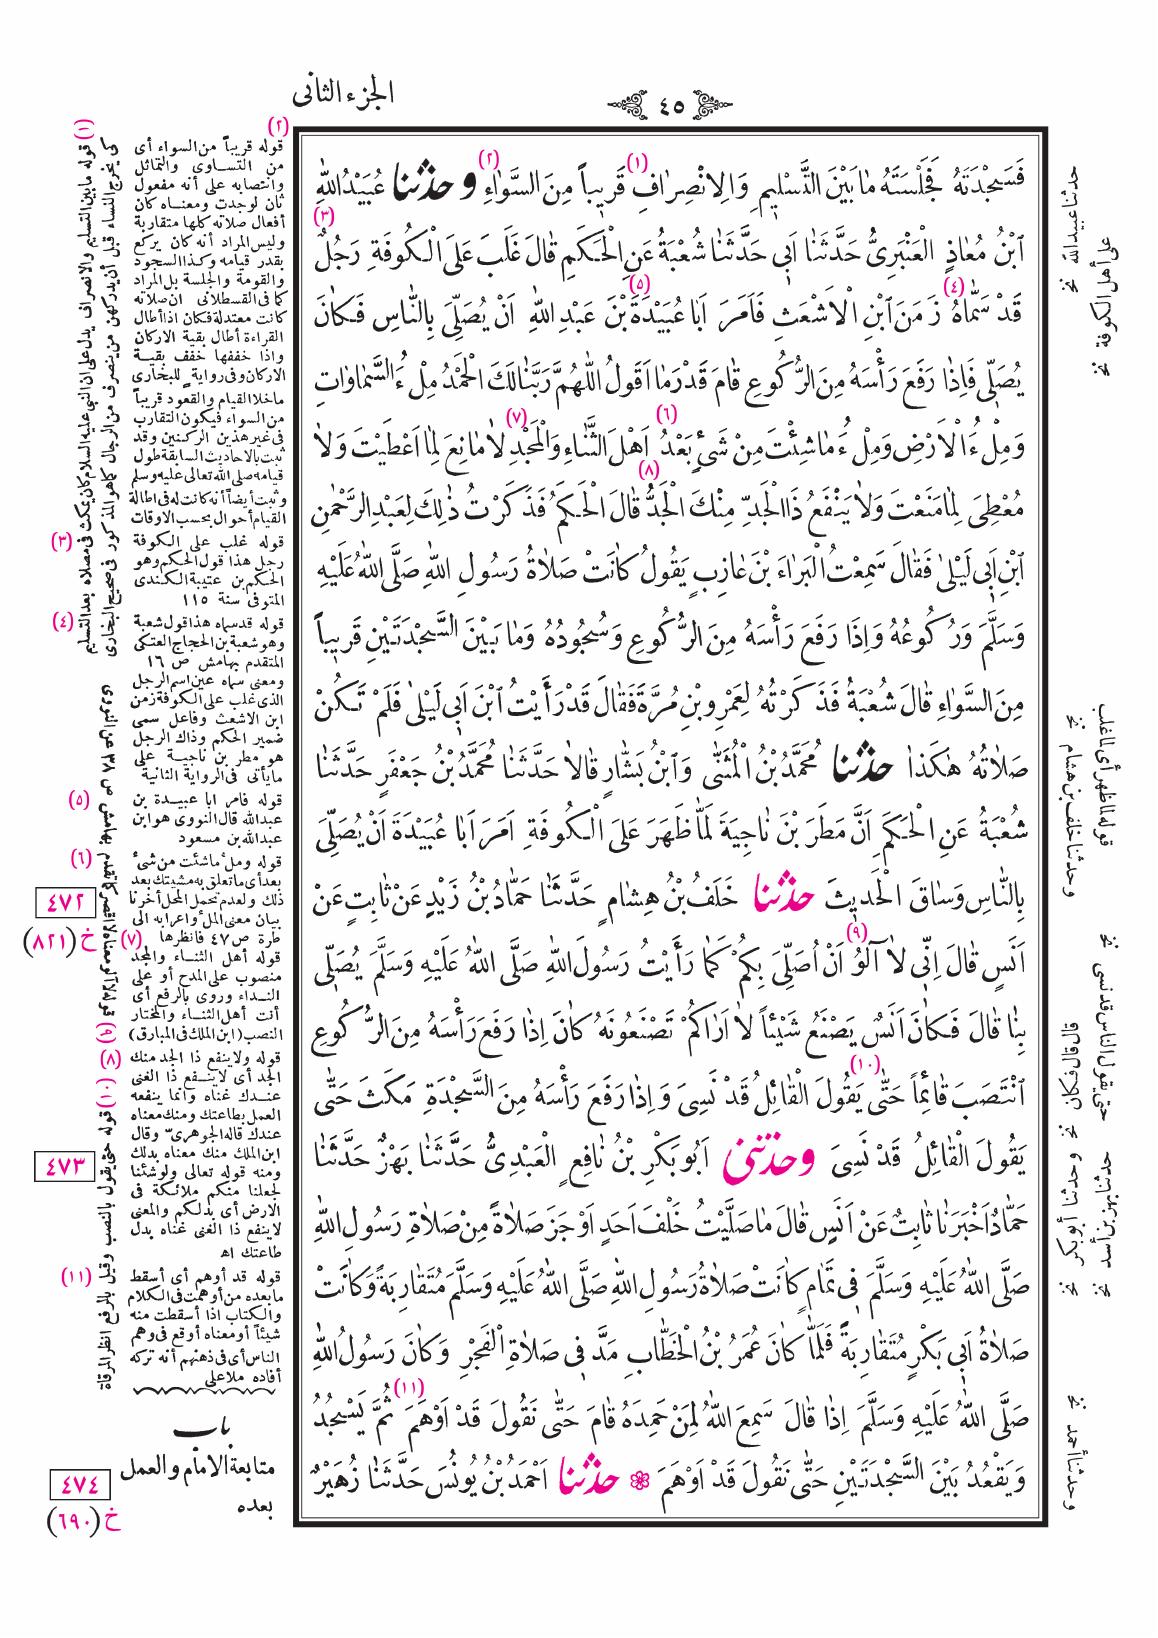 ٤٥
الجزء الثانى
فَسَجْدَتَهُ فَجَلْسَتَهُ مَا بَيْنَ التَّسْلِيمِ وَالِانْصِرَافِ (١) قَرِيباً مِنَ السَّوَاءِ (٢) وحدثنا عُبَيْدُ اللهِ
ابْنُ مُعَاذٍ الْعَنْبَرِىُّ حَدَّثَنَا اَبِي حَدَّثَنَا شُعْبَةُ عَنِ الْحَكَمِ قَالَ غَلَبَ عَلَى الْكُوفَةِ رَجُلٌ (٣)
قَدْ سَمَّاهُ (٤) زَمَنَ ابْنِ الْاَشْعَثِ فَاَمَرَ اَبَا عُبَيْدَةَ (٥) بْنَ عَبْدِ اللهِ اَنْ يُصَلِّىَ بِالنَّاسِ فَكَانَ
يُصَلِّى فَاِذَا رَفَعَ رَأْسَهُ مِنَ الرُّكُوعِ قَامَ قَدْرَ مَا اَقُولُ اللّٰهُمَّ رَبَّنَا لَكَ الْحَمْدُ مِلْءَ السَّمَاوَاتِ
وَمِلْءَ الْاَرْضِ وَمِلْءَ مَا شِئْتَ مِنْ شَىْءٍ بَعْدُ (٦) اَهْلَ الثَّنَاءِ وَالْمَجْدِ (٧) لَا مَانِعَ لِمَا اَعْطَيْتَ وَلَا
مُعْطِىَ لِمَا مَنَعْتَ وَلَا يَنْفَعُ ذَا الْجَدِّ مِنْكَ الْجَدُّ (٨) قَالَ الْحَكَمُ فَذَكَرْتُ ذٰلِكَ لِعَبْدِ الرَّحْمٰنِ
ابْنِ اَبِي لَيْلىٰ فَقَالَ سَمِعْتُ الْبَرَاءَ بْنَ عَازِبٍ يَقُولُ كَانَتْ صَلَاةُ رَسُولِ اللهِ صَلَّى اللهُ عَلَيْهِ
وَسَلَّمَ وَرُكُوعُهُ وَاِذَا رَفَعَ رَأْسَهُ مِنَ الرُّكُوعِ وَسُجُودُهُ وَمَا بَيْنَ السَّجْدَتَيْنِ قَرِيباً
مِنَ السَّوَاءِ قَالَ شُعْبَةُ فَذَكَرْتُهُ لِعَمْرِو بْنِ مُرَّةَ فَقَالَ قَدْ رَأَيْتُ ابْنَ اَبِي لَيْلىٰ فَلَمْ تَكُنْ
صَلَاتُهُ هٰكَذَا حدثنا مُحَمَّدُ بْنُ الْمُثَنّٰى وَابْنُ بَشَّارٍ قَالَا حَدَّثَنَا مُحَمَّدُ بْنُ جَعْفَرٍ حَدَّثَنَا
شُعْبَةُ عَنِ الْحَكَمِ اَنَّ مَطَرَ بْنَ نَاجِيَةَ لَمَّا ظَهَرَ عَلَى الْكُوفَةِ اَمَرَ اَبَا عُبَيْدَةَ اَنْ يُصَلِّىَ
بِالنَّاسِ وَسَاقَ الْحَدِيثَ حدثنا خَلَفُ بْنُ هِشَامٍ حَدَّثَنَا حَمَّادُ بْنُ زَيْدٍ عَنْ ثَابِتٍ عَنْ
اَنَسٍ قَالَ اِنِّى لَا آلُو (٩) اَنْ اُصَلِّىَ بِكُمْ كَمَا رَأَيْتُ رَسُولَ اللهِ صَلَّى اللهُ عَلَيْهِ وَسَلَّمَ يُصَلِّى
بِنَا قَالَ فَكَانَ اَنَسٌ يَصْنَعُ شَيْئاً لَا اَرَاكُمْ تَصْنَعُونَهُ كَانَ اِذَا رَفَعَ رَأْسَهُ مِنَ الرُّكُوعِ
انْتَصَبَ قَائِماً حَتّٰى يَقُولَ (١٠) الْقَائِلُ قَدْ نَسِىَ وَاِذَا رَفَعَ رَأْسَهُ مِنَ السَّجْدَةِ مَكَثَ حَتّٰى
يَقُولَ الْقَائِلُ قَدْ نَسِىَ وحدثنى اَبُو بَكْرِ بْنُ نَافِعٍ الْعَبْدِىُّ حَدَّثَنَا بَهْزٌ حَدَّثَنَا
حَمَّادٌ اَخْبَرَنَا ثَابِتٌ عَنْ اَنَسٍ قَالَ مَا صَلَّيْتُ خَلْفَ اَحَدٍ اَوْجَزَ صَلَاةً مِنْ صَلَاةِ رَسُولِ اللهِ
صَلَّى اللهُ عَلَيْهِ وَسَلَّمَ فِي تَمَامٍ كَانَتْ صَلَاةُ رَسُولِ اللهِ صَلَّى اللهُ عَلَيْهِ وَسَلَّمَ مُتَقَارِبَةً وَكَانَتْ
صَلَاةُ اَبِي بَكْرٍ مُتَقَارِبَةً فَلَمَّا كَانَ عُمَرُ بْنُ الْخَطَّابِ مَدَّ فِي صَلَاةِ الْفَجْرِ وَكَانَ رَسُولُ اللهِ
صَلَّى اللهُ عَلَيْهِ وَسَلَّمَ اِذَا قَالَ سَمِعَ اللهُ لِمَنْ حَمِدَهُ قَامَ حَتّٰى نَقُولَ قَدْ اَوْهَمَ (١١) ثُمَّ يَسْجُدُ
وَيَقْعُدُ بَيْنَ السَّجْدَتَيْنِ حَتّٰى نَقُولَ قَدْ اَوْهَمَ ❁ حدثنا اَحْمَدُ بْنُ يُونُسَ حَدَّثَنَا زُهَيْرٌ
حدثنا عبيد الله نخ
على أهل الكوفة نخ
قوله لما ظهر أى لما غلب
وحدثنا خلف بن هشام نخ
حتى يقول الناس قد نسى نخ
قال قال فكان نخ
وحدثنا أبو بكر نخ
حدثنا بهز بن أسد نخ
وحدثنا أحمد نخ
(٢)
قوله قريباً من السواء أى
من التساوى والتماثل
وانتصابه على أنه مفعول
ثان لوجدت ومعناه كان
أفعال صلاته كلها متقاربة
وليس المراد أنه كان يركع
بقدر قيامه وكذا السجود
والقومة والجلسة بل المراد
كما فى القسطلانى ان صلاته
كانت معتدلة فكان اذا أطال
القراءة أطال بقية الاركان
واذا خففها خفف بقية
الاركان وفى رواية للبخارى
ماخلا القيام والقعود قريباً
من السواء فيكون التقارب
فى غير هذين الركنين وقد
ثبت بالاحاديث السابقة طول
قيامه صلى الله تعالى عليه وسلم
وثبت أيضاً أنه كانت له فى اطالة
القيام أحوال بحسب الاوقات
(٣) قوله غلب على الكوفة
رجل هذا قول الحكم وهو
الحكم بن عتيبة الكندى
المتوفى سنة ١١٥
(٤) قوله قد سماه هذا قول شعبة
وهو شعبة بن الحجاج العتكى
المتقدم بهامش ص ١٦
ومعنى سماه عين اسم الرجل
الذى غلب على الكوفة زمن
ابن الاشعث وفاعل سمى
ضمير الحكم وذاك الرجل
هو مطر بن ناجية على
ما يأتى فى الرواية الثانية
(٥) قوله فامر ابا عبيدة بن
عبدالله قال النووى هو ابن
عبدالله بن مسعود
(٦) قوله وملْ ما شئت من شىْ
بعد أى ما تعلق به مشيتك بعد
ذلك ولعدم تحمل المحل أخرنا
بيان معنى الملْ واعرابه الى
طرة ص ٤٧ فانظرها
(٧) قوله أهل الثناء والمجد
منصوب على المدح أو على
النداء وروى بالرفع أى
أنت أهل الثناء والمختار
النصب (ابن الملك فى المبارق)
(٨) قوله ولا ينفع ذا الجد منك
الجد أى لا ينفع ذا الغنى
عندك غناه وانما ينفعه
العمل بطاعتك ومنك معناه
عندك قاله الجوهرىّ وقال
ابن الملك منك معناه بدلك
ومنه قوله تعالى ولو شئنا
لجعلنا منكم ملائكة فى
الارض أى بدلكم والمعنى
لا ينفع ذا الغنى غناه بدل
طاعتك اه
(١١) قوله قد أوهم أى أسقط
ما بعده من أوهمت فى الكلام
والكتاب اذا أسقطت منه
شيئاً أو معناه أوقع فى وهم
الناس أى فى ذهنهم أنه تركه
أفاده ملا على
باب
متابعة الامام والعمل
بعده
(١) قوله ما بين التسليم والانصراف يدل على ان النبى عليه السلام كان يمكث فى مصلاه بعد التسليم
كى يخرج النساء قبل أن يدركهن من ينصرف من الرجال كما هو المذكور فى صحيح البخارى
(٩) قوله لا آلو معناه لا أقصر كما تقدم بهامش ص ٣٨ عن النووى
(١٠) قوله حتى يقول بالنصب وقيل بالرفع انظر المرقاة
٤٧٢
خ (٨٢١)
٤٧٣
٤٧٤
خ (٦٩٠)